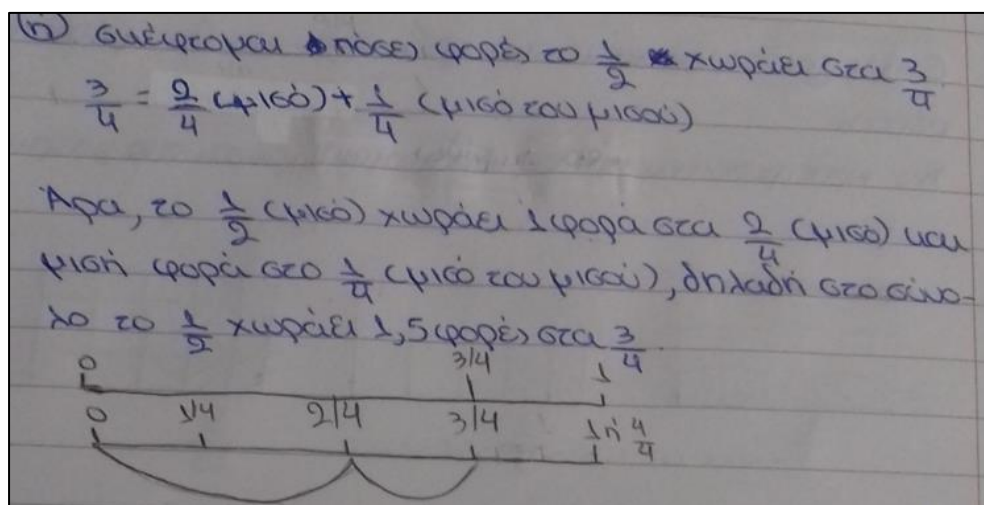 (η) σκέφτομαι πόσες φορές το 1/2 χωράει στα 3/4
3/4 = 2/4 (μισό) + 1/4 (μισό του μισού)
Άρα, το 1/2 (μισό) χωράει 1 φορά στα 2/4 (μισό) και
μισή φορά στο 1/4 (μισό του μισού), δηλαδή στο σύνο-
λο το 1/2 χωράει 1,5 φορές στα 3/4.
0 3/4 1
0 1/4 2/4 3/4 1 ή 4/4